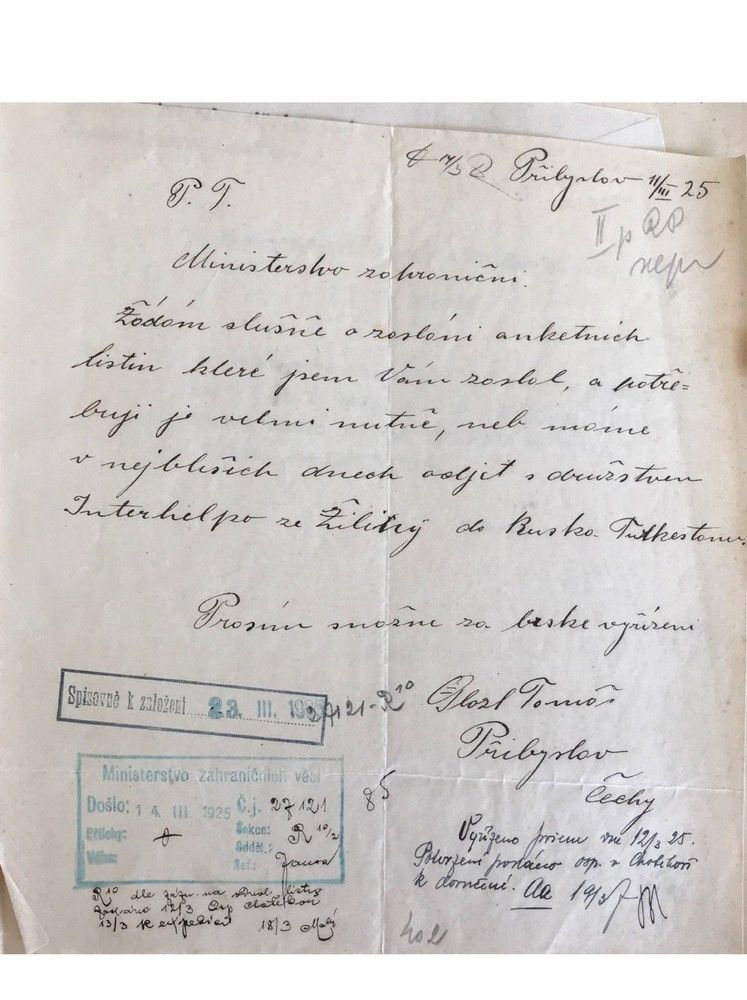 Přibyslov 11/III 25
P. T.
Ministerstvo zahroniční.
Žádám slušně o zaslání anketních
listin kleré jsem Vám zaslal, a potře=
buji je velmi nutně, neb máme
v nejbleších dnech odjet s družstvem
Interhelpo ze Žiliny do Rusko. Turkestanu.
Prosím snožne za brske vyřízení
II p
Spisovně k založení 23. III. 192
27121-R10
Tomáš
Přibyslov
Čechy
Ministerstvo zahraničních věcí
Došlo: 14. III. 1925 Č.j. 27121
Přílohy: Sekce: R 10/2
Váha: Odděl.:
Ref.:
85
Vyřízeno přiem dne 12/3 25.
Potvrzení posláno osp. v Chotěboři
k doručení. 19/3
R10 dle zázn. na listu
12/3 Osp Chotěboř
13/3 k expedici 18/3 Malý
402